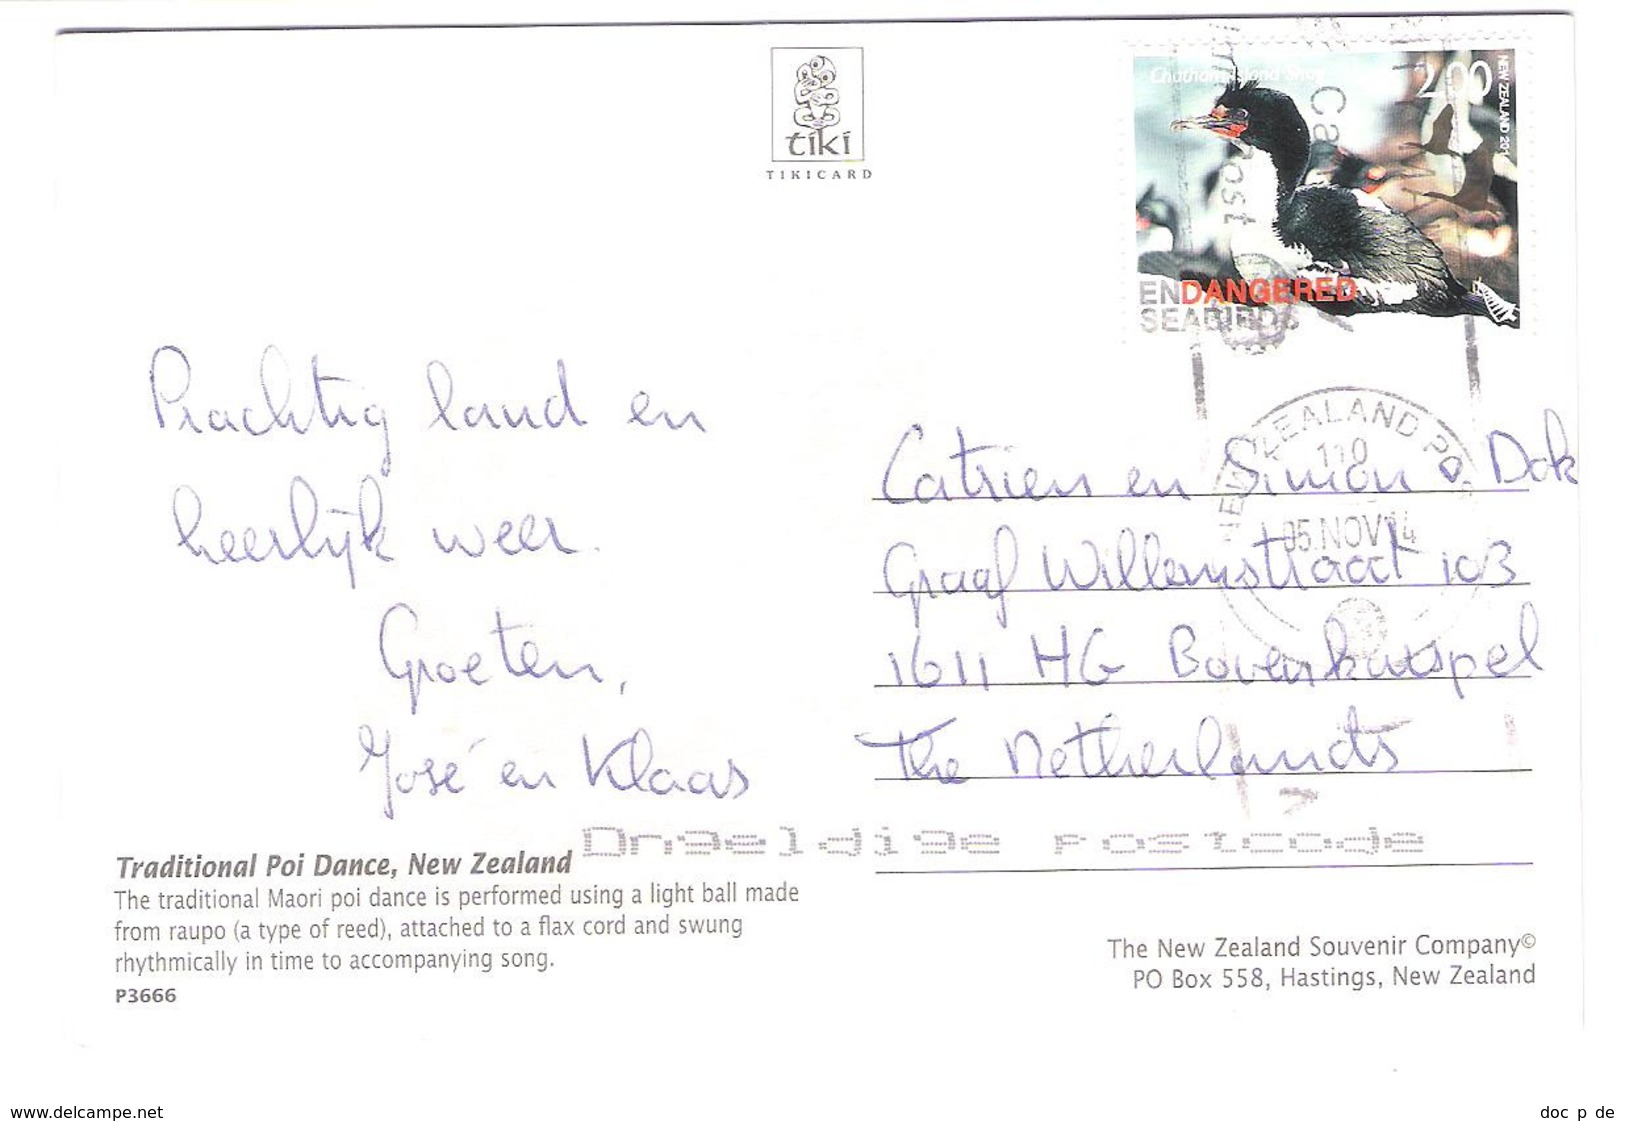 tiki
TIKICARD
Chatham Island Shag
2.00
NEW ZEALAND
ENDANGERED
SEABIRDS
NEW ZEALAND POST
110
05.NOV14
Prachtig land en
heerlijk weer.
Groeten,
José en Klaas
Catrien en Simon Dok
Graaf Willemstraat 103
1611 HG Bovenkarspel
The Netherlands
Ongeldige postcode
Traditional Poi Dance, New Zealand
The traditional Maori poi dance is performed using a light ball made
from raupo (a type of reed), attached to a flax cord and swung
rhythmically in time to accompanying song.
P3666
The New Zealand Souvenir Company©
PO Box 558, Hastings, New Zealand
www.delcampe.net
doc_p_de